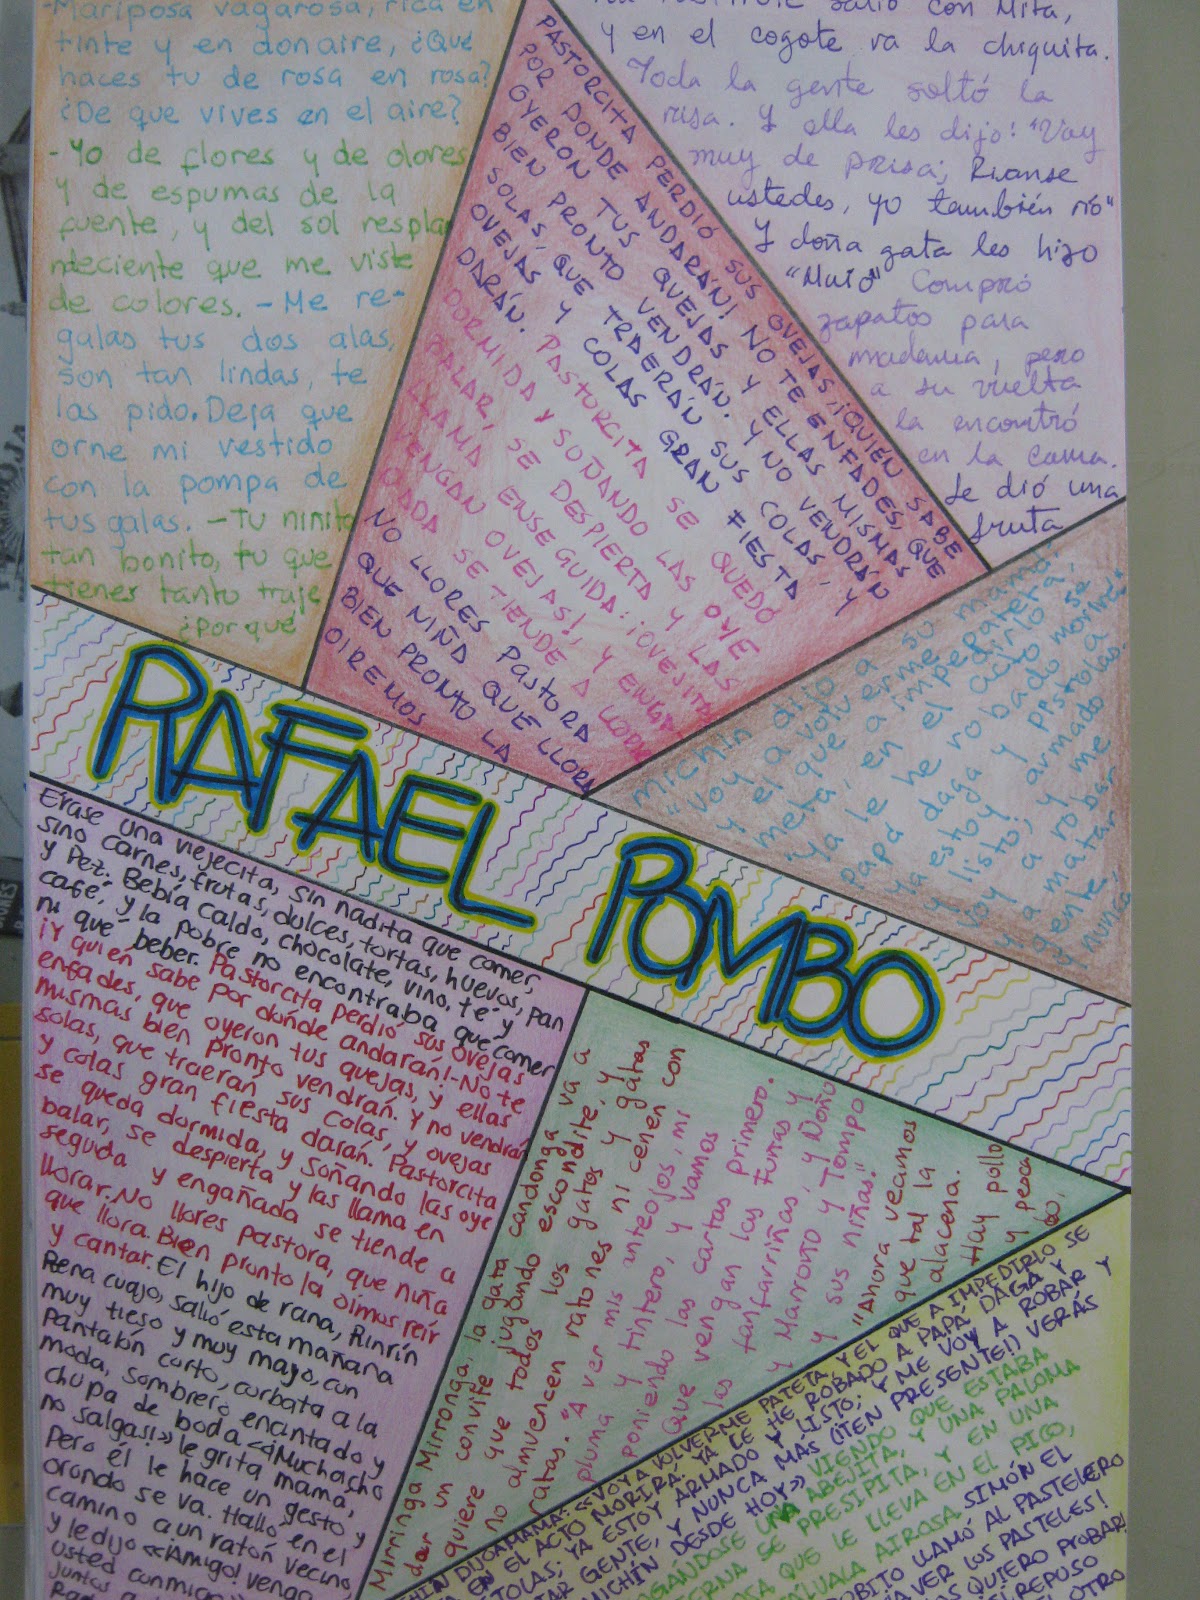 -Mariposa vagarosa, rica en
tinte y en donaire, ¿Que
haces tu de rosa en rosa?
¿De que vives en el aire?
-Yo de flores y de olores
y de espumas de la
fuente, y del sol resplan
ndeciente que me viste
de colores. -Me re-
galas tus dos alas,
son tan lindas, te
las pido. Deja que
orne mi vestido
con la pompa de
tus galas. -Tu ninito
tan bonito, tu que
tienes tanto traje
¿Por que
PASTORCITA PERDIÓ SUS OVEJAS, ¡QUIÉN SABE
POR DONDE ANDARÁN! NO TE ENFADES, QUE
OYERON TUS QUEJAS Y ELLAS MISMAS
BIEN PRONTO VENDRÁN. Y NO VENDRÁN
SOLAS, QUE TRAERÁN SUS COLAS, Y
OVEJAS Y COLAS GRAN FIESTA
DARÁN. PASTORCITA SE QUEDÓ
DORMIDA Y SOÑANDO LAS OYE
BALAR, SE DESPIERTA Y LAS
LLAMA ENSEGUIDA: ¡OVEJITAS
VENGAN OVEJAS!, Y ENGA-
ÑADA SE TIENDE A LLORAR
NO LLORES PASTORA
QUE NIÑA QUE LLORA
BIEN PRONTO LA
OIREMOS
salió con Mita,
y en el cogote va la chiquita.
Toda la gente soltó la
risa. Y ella les dijo: "Voy
muy de prisa; Rianse
ustedes, yo también río"
Y doña gata les hizo
"Muió" Compró
zapatos para
madama, pero
a su vuelta
la encontró
en la cama.
Le dió una
fruta
Michín dijo a su mamá:
"Voy a volverme pateta,
y el que a impedirlo se
meta, en el acto morirá.
Ya le he robado a
papá daga y pistolas.
ya estoy armado
y listo, y me
voy a robar
y a matar
gente
y nunca
RAFAEL POMBO
Érase una viejecita, sin nadita que comer,
sino carnes, frutas, dulces, tortas, huevos, pan
y Pez. Bebía caldo, chocolate, vino, té y
café, y la pobre no encontraba que comer
ni que beber. Pastorcita perdió sus ovejas
¡Y quien sabe por donde andarán!-No te
enfades, que oyeron tus quejas, y ellas
mismas bien pronto vendrán. Y no vendrán
solas, que traerán sus colas, y ovejas
y colas gran fiesta darán. Pastorcita
se queda dormida, y soñando las oye
balar, se despierta y las llama en
seguida y engañada se tiende a
llorar. No llores pastora, que niña
que llora. Bien pronto la oimos reír
y cantar. El hijo de rana, Rinrín
Rena cuajo, salió esta mañana
muy tieso y muy mayo, con
Pantalón corto, corbata a la
moda, Sombrero encantado y
chupa de boda. «¡Muchacho
no salgas!» le grita mamá,
Pero él le hace un gesto y
orondo se va. Halló en el
camino a un ratón vecino
y le dijo «¡Amigo! venga
usted conmigo
Juntos a
Mirringa Mirronga, la gata candonga va a
dar un convite jugando escondite, y
quiere que todos los gatos y gatas
no almuercen ratones ni cenen con
ratas. "A ver mis anteojos, mi
pluma y tintero, y vamos
poniendo las cartas primero.
Que vengan las Fuñas y
las Fanfarriñas, y Ñoño
y Marroño y Tompo
y sus niñas."
"Ahora veamos
que tal la
alacena.
Hay pollo
y pesca
DIJO A MAMÁ: «VOY A VOLVERME PATETA, Y EL QUE A IMPEDIRLO SE
META EN EL ACTO MORIRÁ. YA LE HE ROBADO A PAPÁ DAGA Y
PISTOLAS; YA ESTOY ARMADO Y LISTO; Y ME VOY A ROBAR Y
MATAR GENTE, Y NUNCA MÁS (¡TEN PRESENTE!) VERÁS
A MICHÍN DESDE HOY»
VIENDO QUE ESTABA
AHOGÁNDOSE UNA ABEJITA, Y UNA PALOMA
TIERNA SE PRESIPITA, Y EN UNA
QUE LE LLEVA EN EL PICO,
AIROSA. SIMÓN EL
BOBITO LLAMÓ AL PASTELERO
¡A VER LOS PASTELES!
LOS QUIERO PROBAR!
REPUSO
EL OTRO